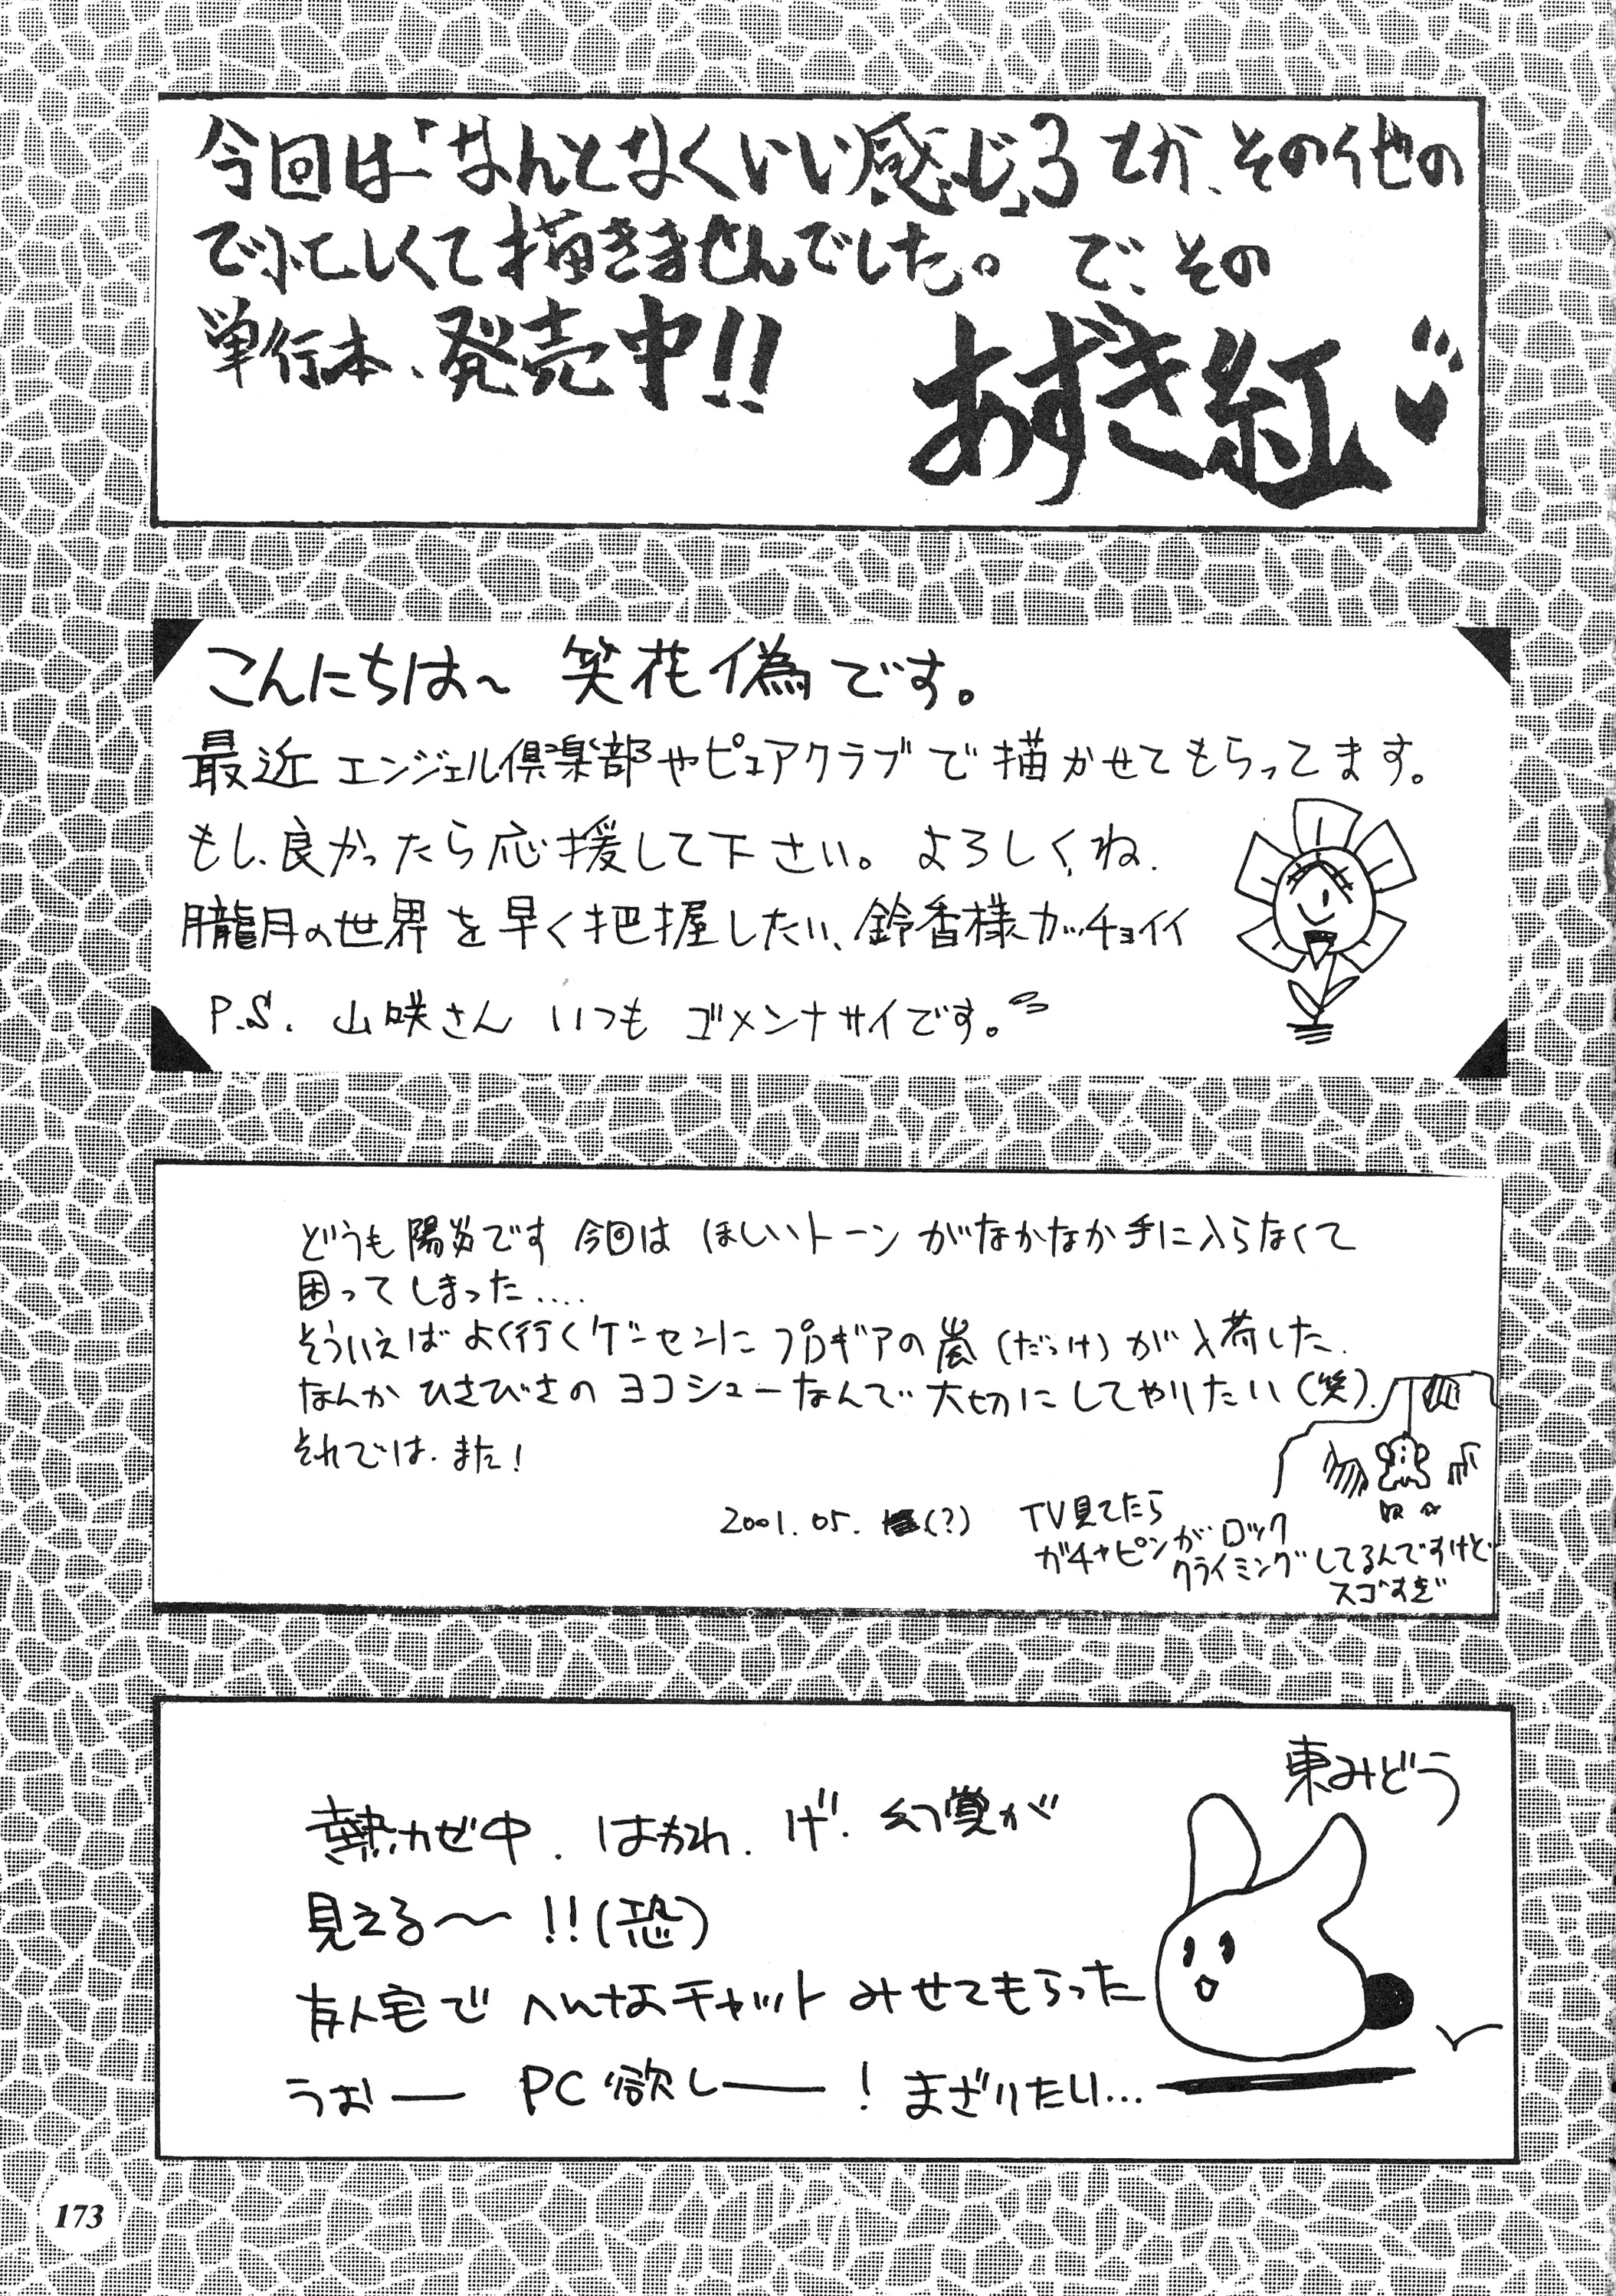 今回は「なんとなくいい感じ」3 とか、その他の
で忙しくて描きませんでした。 で、その
単行本、発売中!!
あずき紅
こんにちは〜 笑花偽です。
最近エンジェル倶楽部やピュアクラブで描かせてもらってます。
もし、良かったら応援して下さい。よろしくね.
朧月の世界を早く把握したい、鈴香様カッチョイイ
P.S. 山咲さん いつも ゴメンナサイです。
どうも陽炎です 今回は ほしいトーンがなかなか手に入らなくて
困ってしまった....
そういえばよく行くゲーセンにプロギアの嵐(だっけ)が入荷した.
なんか ひさびさの ヨコシューなんで大切にしてやりたい(笑).
それでは.また!
2001.05. (?)
TV見てたら
ガチャピンがロック
クライミングしてるんですけど
スゴすぎ
東みどう
熱カゼ中. はかれ. げ! 幻覚が
見える〜!!(恐)
友人宅で へんなチャット みせてもらった
うおー PC欲しー! まざりたい...
173